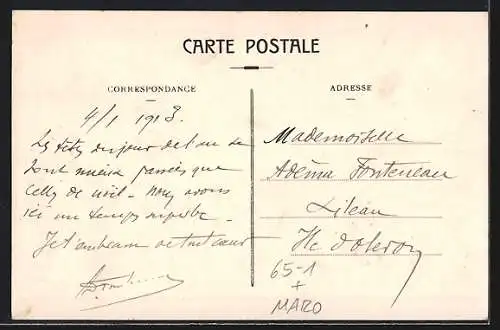 CARTE POSTALE
CORRESPONDANCE
ADRESSE
4/1 1913.
Les fêtes du jour de l'an se
sont mieux passées que
celles de noël - Nous avons
ici un temps superbe -
Je t'embrasse de tout cœur
Mademoiselle
Adéma Fonteneau
Lileau
Ile d'oleron
65-1
+
MARO